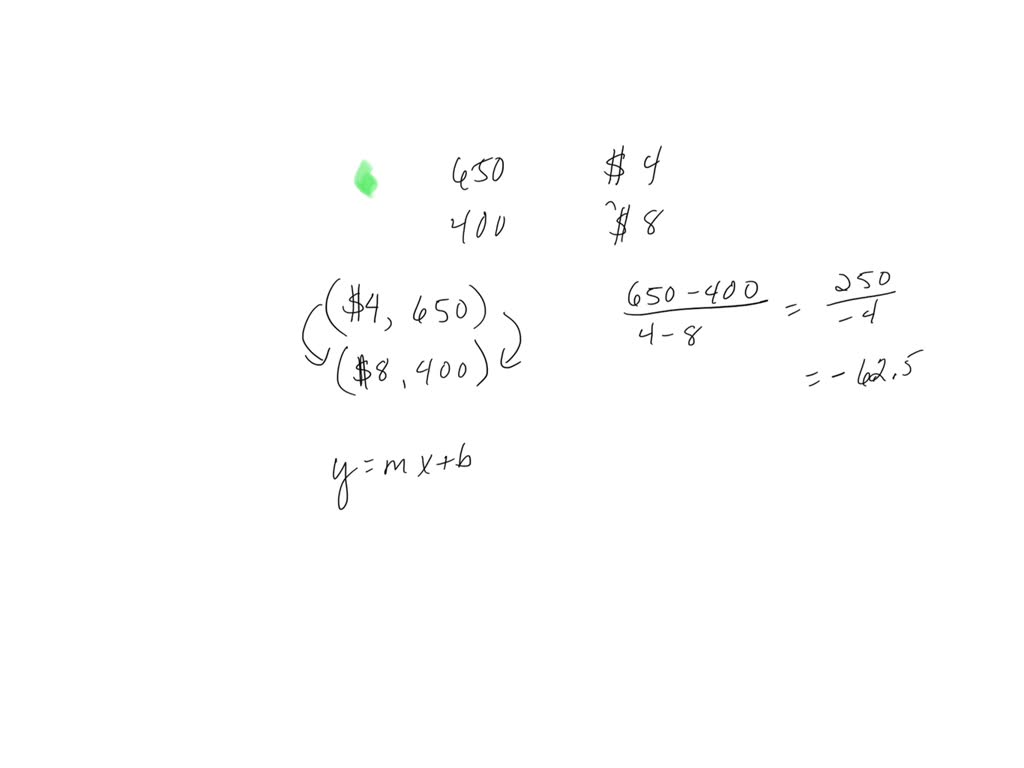 650 $4
400 $8
($4, 650)
($8, 400)
650-400 / 4-8 = 250 / -4
= -62.5
y=mx+b